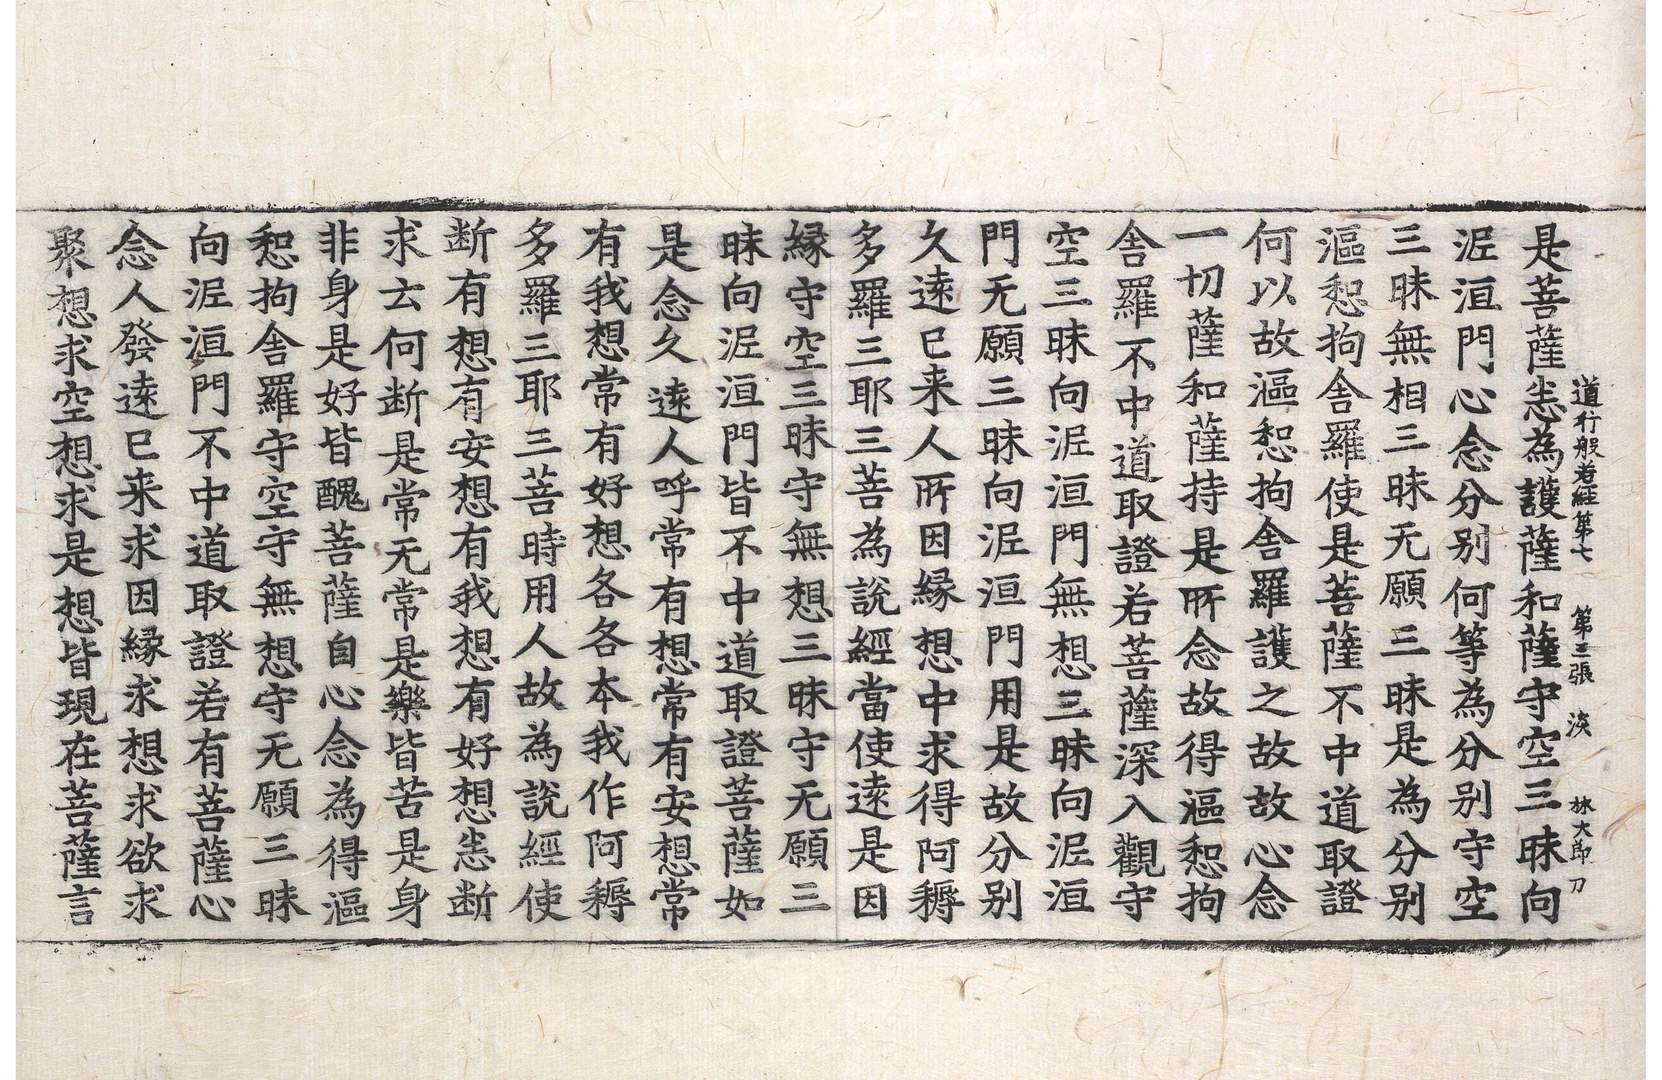 道行般若經第七 第三張 淡 林大郎刀
是菩薩悉為護薩和薩守空三昧向
泥洹門心念分別何等為分別守空
三昧無相三昧无願三昧是為分別
漚惒拘舍羅使是菩薩不中道取證
何以故漚惒拘舍羅護之故故心念
一切薩和薩持是所念故得漚惒拘
舍羅不中道取證若菩薩深入觀守
空三昧向泥洹門無想三昧向泥洹
門无願三昧向泥洹門用是故分別
久遠已来人所因緣想中求得阿耨
多羅三耶三菩為說經當使遠是因
緣守空三昧守無想三昧守无願三
昧向泥洹門皆不中道取證菩薩如
是念久遠人呼常有想常有安想常
有我想常有好想各各本我作阿耨
多羅三耶三菩時用人故為說經使
断有想有安想有我想有好想悉断
求去何断是常无常是樂皆苦是身
非身是好皆醜菩薩自心念為得漚
惒拘舍羅守空守無想守无願三昧
向泥洹門不中道取證若有菩薩心
念人發遠已来求因緣求想求欲求
聚想求空想求是想皆現在菩薩言